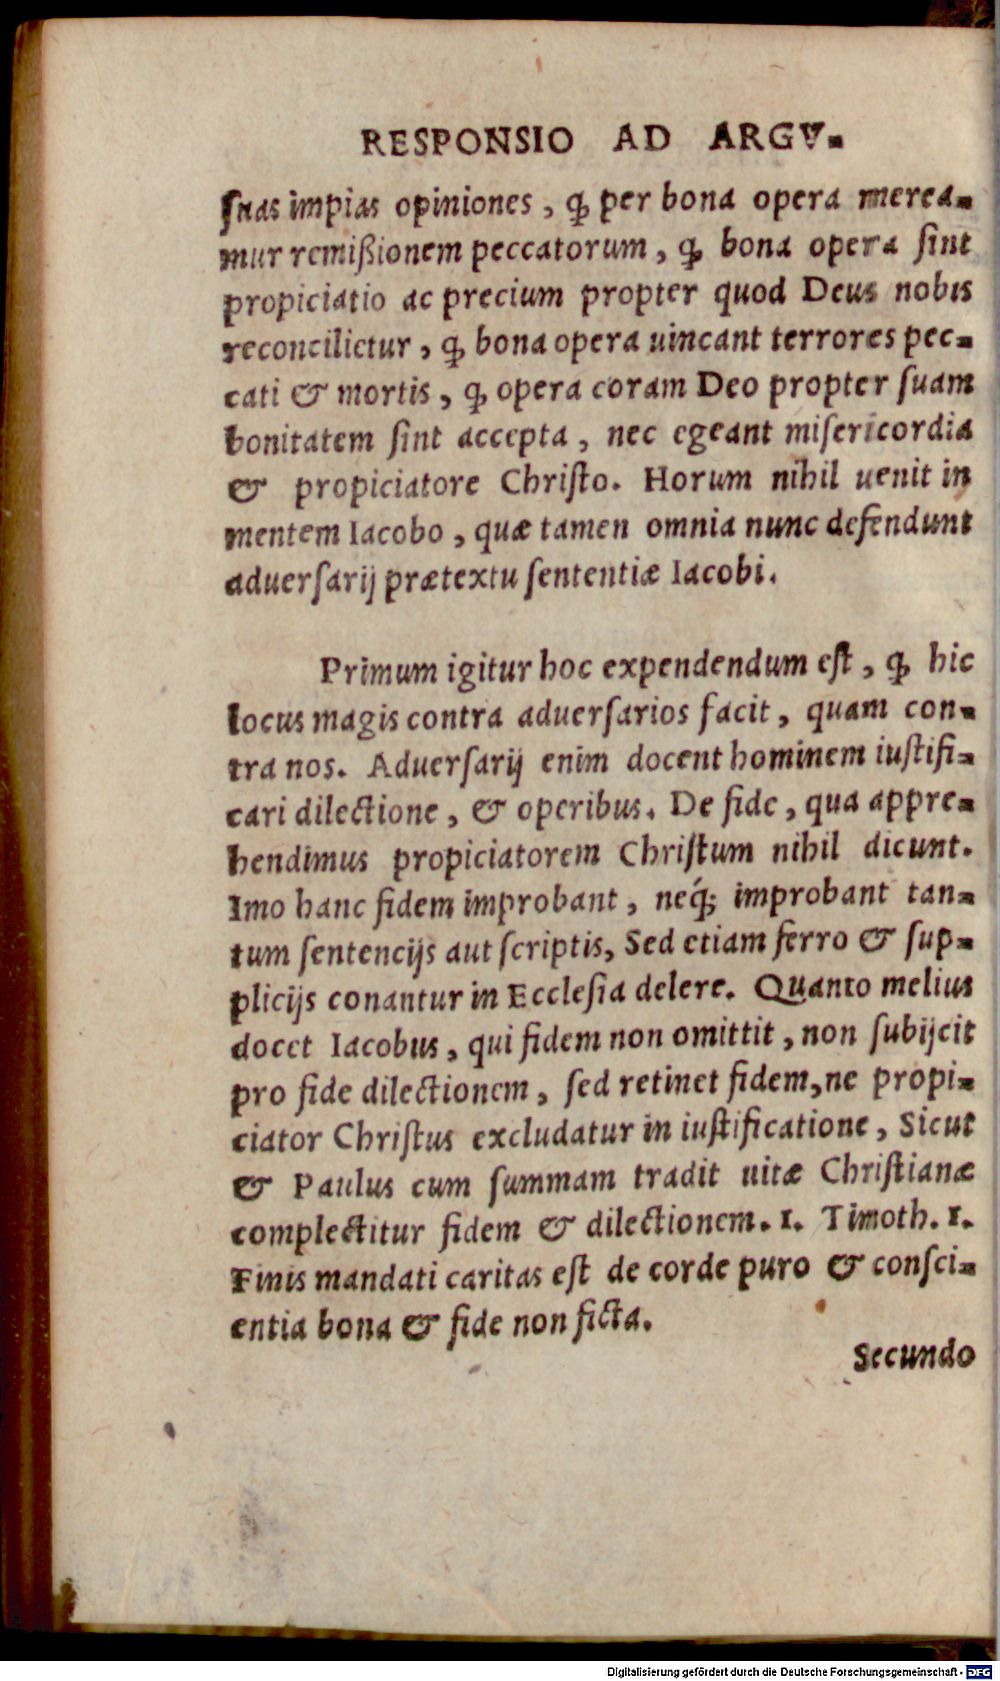 RESPONSIO AD ARGV-
suas impias opiniones, ꝙ per bona opera merea-
mur remißionem peccatorum, ꝙ bona opera sint
propiciatio ac precium propter quod Deus nobis
reconcilietur, ꝙ bona opera uincant terrores pec-
cati & mortis, ꝙ opera coram Deo propter suam
bonitatem sint accepta, nec egeant misericordia
& propiciatore Christo. Horum nihil uenit in
mentem Iacobo, quæ tamen omnia nunc defendunt
aduersarij prætextu sententiæ Iacobi.
Primum igitur hoc expendendum est, ꝙ hic
locus magis contra aduersarios facit, quam con-
tra nos. Aduersarij enim docent hominem iustifi-
cari dilectione, & operibus. De fide, qua appre-
hendimus propiciatorem Christum nihil dicunt.
Imo hanc fidem improbant, neq́; improbant tan-
tum sentencijs aut scriptis, Sed etiam ferro & sup-
plicijs conantur in Ecclesia delere. Quanto melius
docet Iacobus, qui fidem non omittit, non subijcit
pro fide dilectionem, sed retinet fidem, ne propi-
ciator Christus excludatur in iustificatione, Sicut
& Paulus cum summam tradit uitæ Christianæ
complectitur fidem & dilectionem. 1. Timoth. 1.
Finis mandati caritas est de corde puro & consci-
entia bona & fide non ficta.
Secundo
Digitalisierung gefördert durch die Deutsche Forschungsgemeinschaft - DFG